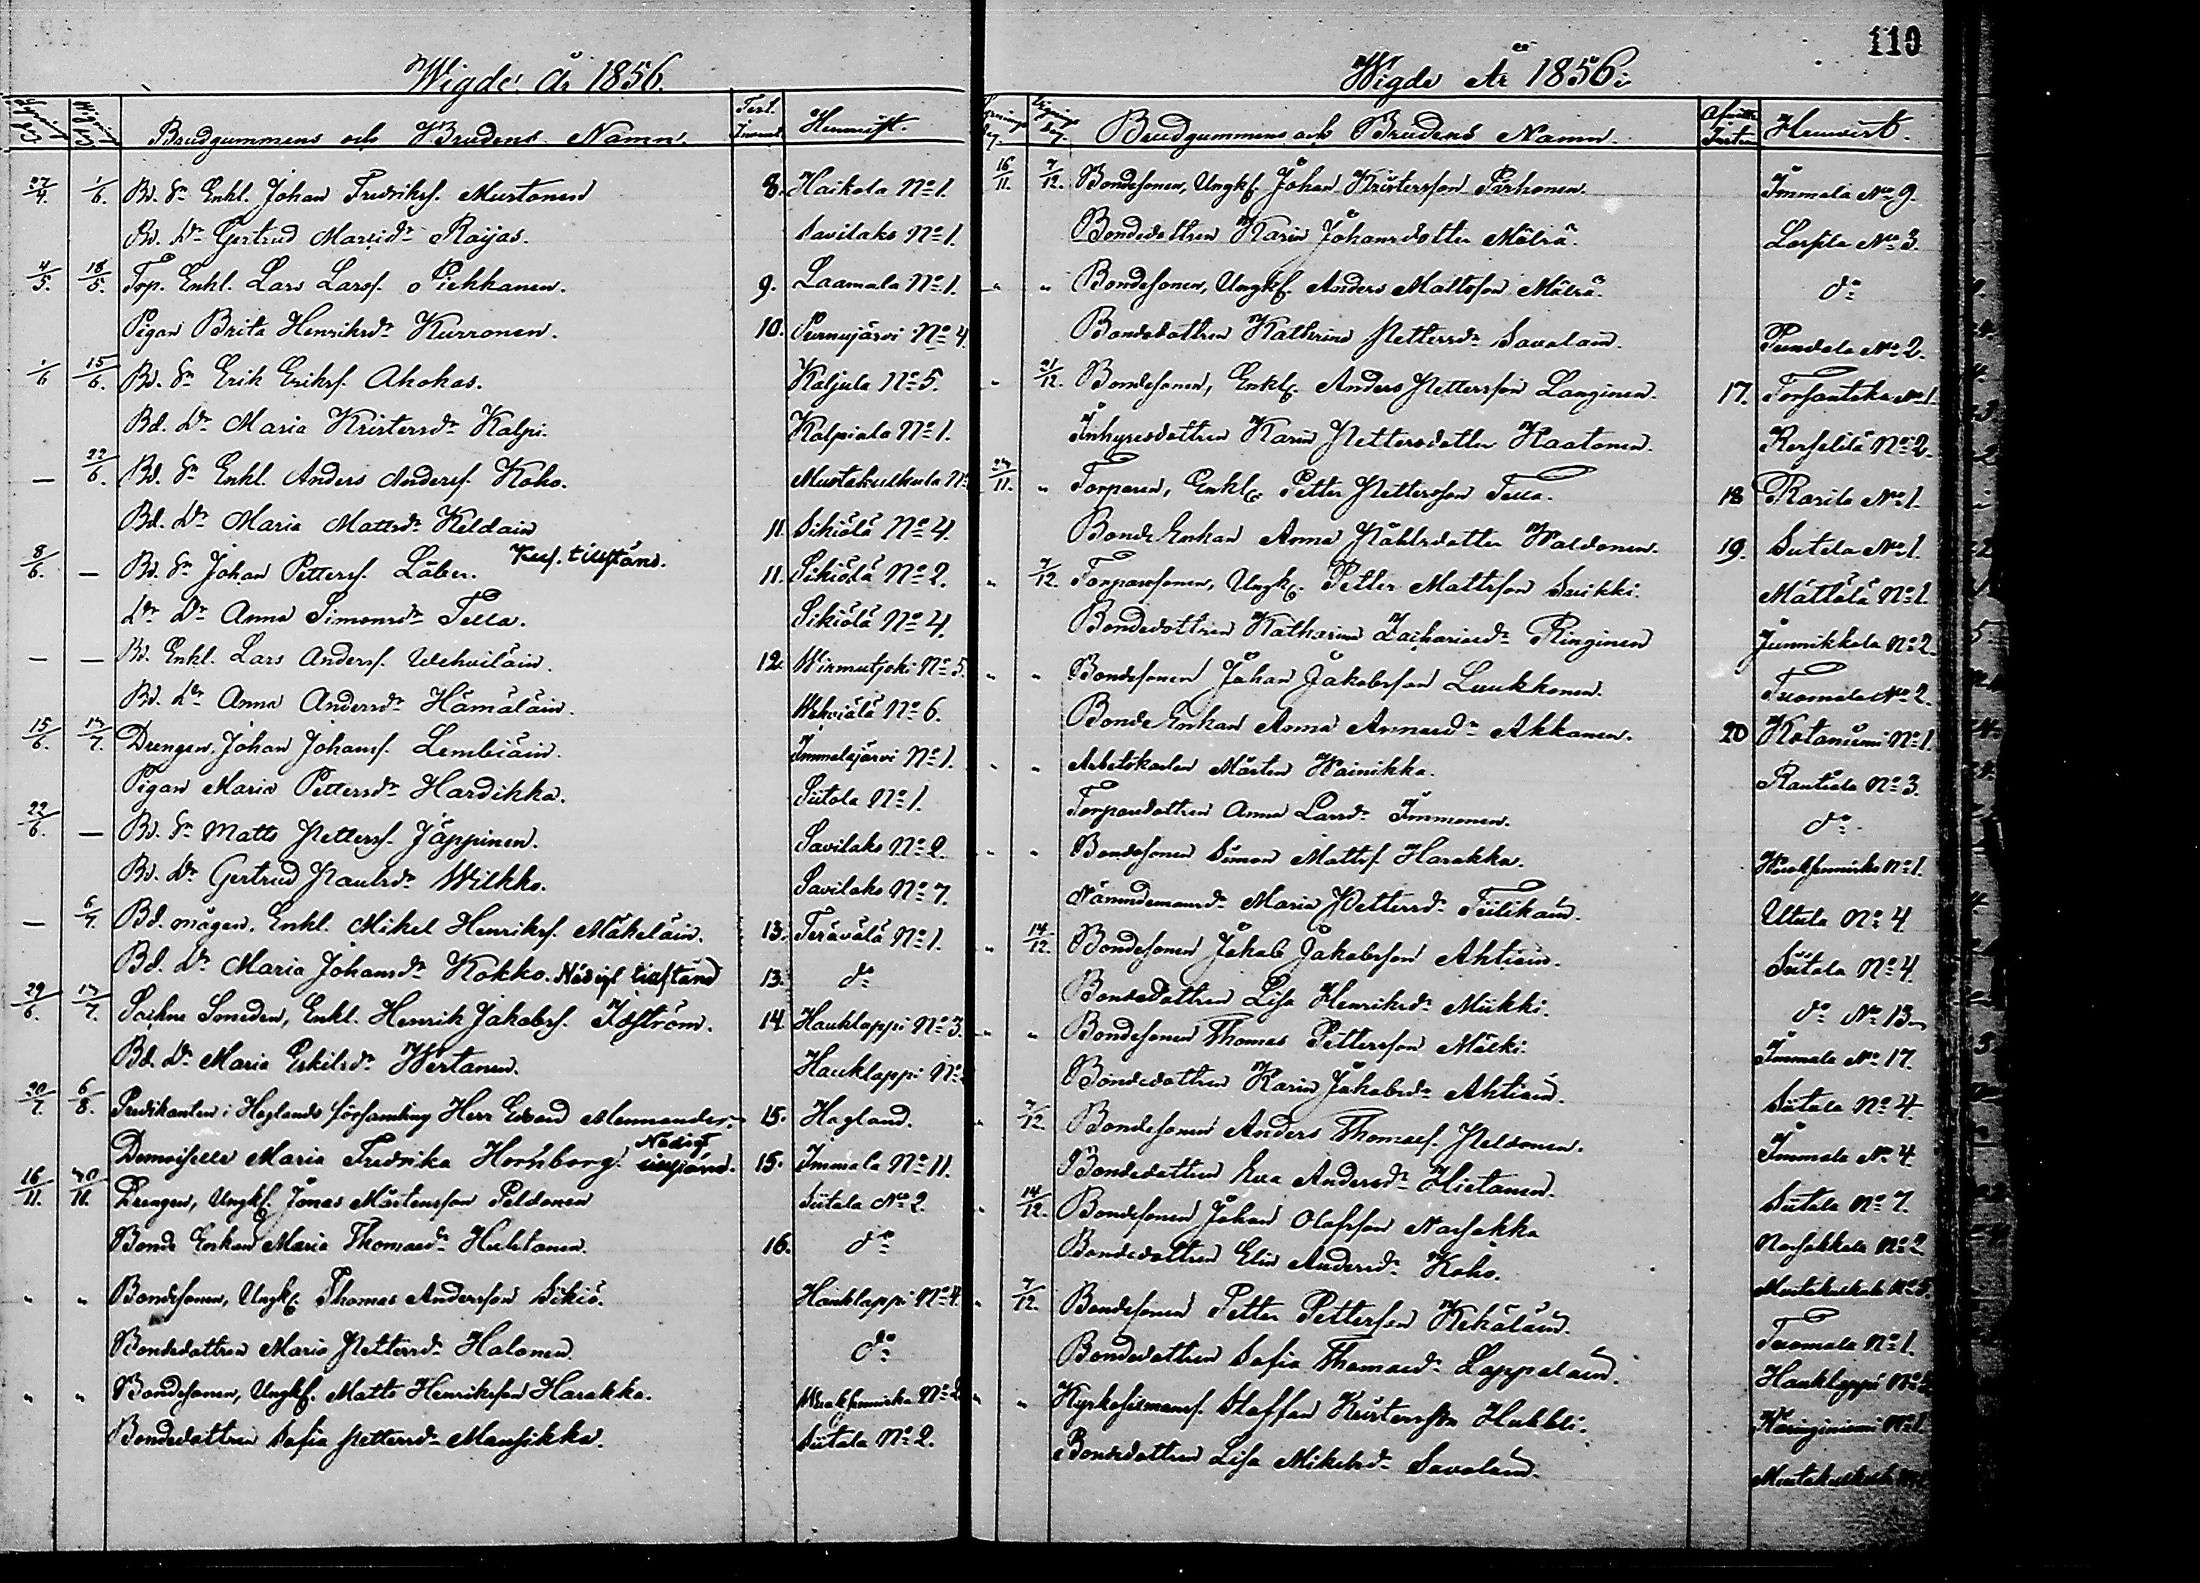 Wigde År 1856.
Lysnings dag
Wignings dag
Brudgummens och Brudens Namn.
Hemvist.
27/4. 1/6. Bd. Sn Enkl. Johan Fredriksf. Mustonen 8. Haikola No 1.
Bd. Dr Gertrud Marsdr Raijas. Savilaks No 1.
4/5. 18/5. Torp. Enkl. Lars Larsf. Piekkanen. 9. Laamala No 1.
Pigan Brita Henriksdr Kurronen. 10. Purnujärvi No 4.
1/6 15/6. Bd. Sn Erik Eriksf. Ahokas. Kaljula No 5.
Bd. Dr Maria Kristersdr Kalpi. Kalpiala No 1.
— 22/6. Bd. Sn Enkl. Anders Andersf. Koho. Mustakulkula No
Bd. Dr Maria Mattsdr Keldain 11. Sikiölä No 4.
8/6. — Bd. Sn Johan Pettersf. Läber. Kejs. tillstånd. 11. Sikiölä No 2.
Dr Dr Anna Simonsdr Tella. Sikiölä No 4.
— — Bd. Enkl. Lars Andersf. Wehviläin. 12. Wirmutjoki No 5.
Bd. Dr Anna Andersdr Hämäläin. Wehviälä No 6.
15/6. 13/7. Drengen, Johan Johansf. Lembiäin. Immalajärvi No 1.
Pigan Maria Pettersdr Hardikka. Siitola No 1.
22/6. — Bd. Sn Matts Pettersf. Jäppinen. Savilaks No 2.
Bd. Dr Gertrud Paulsdr Wilkko. Savilaks No 7.
— 6/7. Bd. mågen, Enkl. Mikel Henriksf. Mäkeläin. 13. Terävälä No 1.
Bd. Dr Maria Johansdr Kokko. Nådigt tillstånd 13. do
29/6. 13/7. Sockne Smeden, Enkl. Henrik Jakobsf. Boström. 14. Hauklappi No 3.
Bd. Dr Maria Eskilsdr Wertanen. Hauklappi No
20/7. 6/8. Predikanten i Hoglands församling Herr Edvard Mennander. 15. Hogland.
Demoiselle Maria Fredrika Hornborg. Nådigt tillstånd. 15. Immala No 11.
16/11. 30/11. Drengen, Ungk. Jonas Mårtensson Peldonen Siitala No 2.
Bonde Enkan Maria Thomasdr Huhtanen. 16. do
" " Bondesonen, Ungk. Thomas Andersson Sikiö. Hauklappi No 4.
Bondedottren Maria Pettersdr Halonen. do
" " Bondesonen, Ungk. Matts Henriksson Harakka. No 2
Bondedottren Sofia Pettersdr Mansikka. Siitala No 2.
119
Wigde År 1856.
Lysnings dag
Wignings dag
Brudgummens och Brudens Namn.
Hemvist.
16/11. 7/12. Bondesonen, Ungk. Johan Kristersson Pärhonen. Immala No 9.
Bondedottren Karin Johansdotter Mälrä. Lassila No 3.
" " Bondesonen, Ungk. Anders Mattsson Mälrä. do
Bondedottren Katharina Pettersdr Savolain. Pundala No 2.
" 21/12. Bondesonen, Enkl. Anders Pettersson Langinen. 17. Torsantaka No 1.
Inhysesdottren Karin Pettersdotter Kaatonen. Kersilälä No 2.
23/11. " Torparen, Enkl. Petter Pettersson Tella. 18 Rasila No 1.
Bonde Enkan Anna Påhlsdotter Waldonen. 19. Sutela No 1.
" 7/12. Torparesonen, Ungk. Petter Mattsson Suikki. Mättälä No 1.
Bondedottren Katharina Zachariasdr Ringinen Junnikkala No 2.
" " Bondesonen Johan Jakobsson Luukkonen. Tuomala No 2.
Bonde Enkan Anna Annasdr Akkanen. 20 Kotaniemi No 1.
" " Arbetskarlen Mårten Wainikka. Rautiala No 3.
Torparedottren Anna Larsdr Immonen. do
" " Bondesonen Simon Mattsf. Harakka. No 1.
Nämndemansdr Maria Pettersdr Tiilikain. Uttula No 4
" 14/12. Bondesonen Jakob Jakobsson Ahtiain. Siitala No 4.
Bondedottren Lisa Henriksdr Miikki. do No 13.
" " Bondesonen Thomas Pettersson Mälki. Immala No 17.
Bondedottren Karin Jakobsdr Ahtiain. Siitala No 4.
" 7/12. Bondesonen Anders Thomasf. Peldonen. Immala No 4.
Bondedottren Eva Andersdr Hietanen. Siitala No 7.
" 14/12. Bondesonen Johan Olofsson Narsakka Narsakkala No 2
Bondedottren Elin Andersdr Koho. Mustakulkula No 5.
" 7/12. Bondesonen Petter Pettersson Kekäläin. Tuomala No 1.
Bondedottren Sofia Thomasdr Lappalain. Hauklappi No 2
" " Kyrkofilmansf. Staffan Kristersson Hukkli. Käringiniemi No 1.
Bondedottren Lisa Mikelsdr Savolain. Mustakulkula No